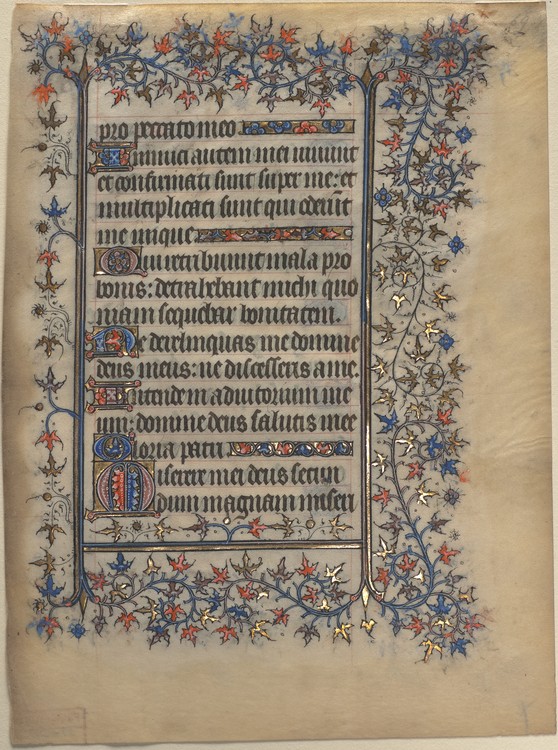 pro peccato meo
Inimici autem mei vivunt
et confirmati sunt super me: et
multiplicati sunt qui oderūt
me inique
Qui retribuunt mala pro
bonis: detrahebant michi quo
niam sequebar bonitatem.
Ne derelinquas me domine
deus meus: ne discesseris a me.
Intende in adiutorium me
um: domine deus salutis mee
Gloria patri
Miserere mei deus secun
dum magnam miseri